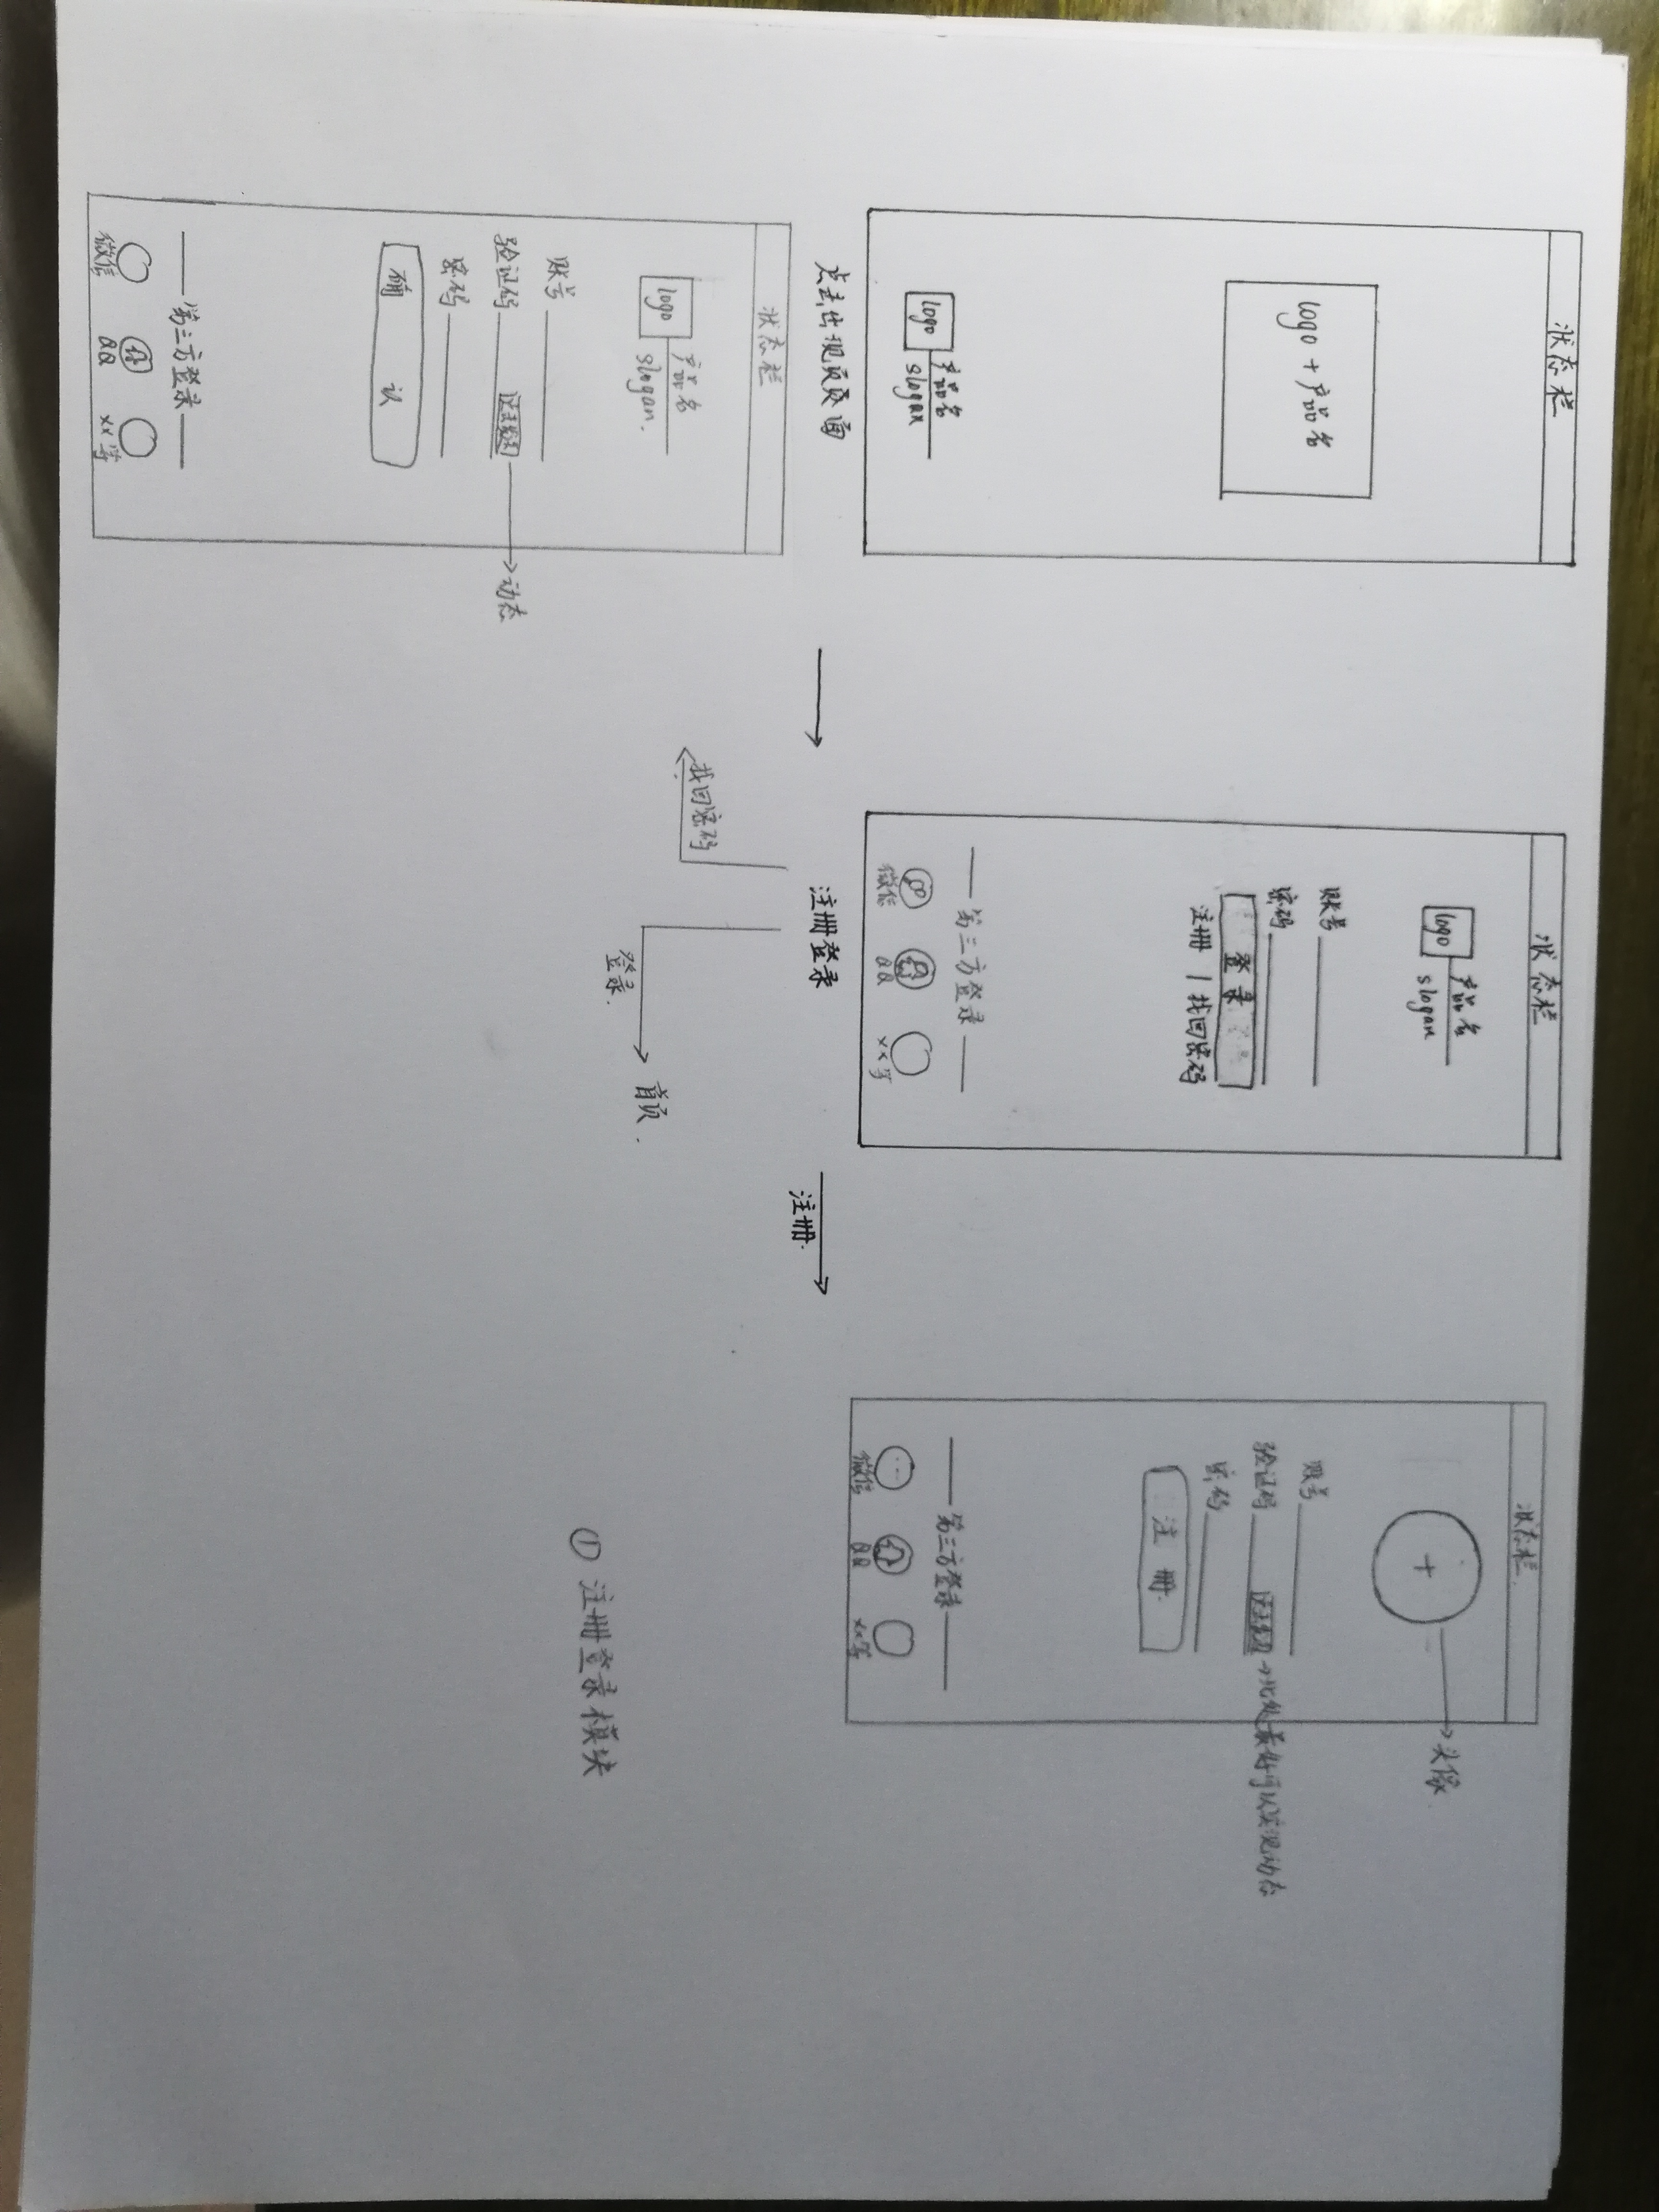 状态栏
logo + 产品名
logo
产品名
slogan
点击出现页页面
状态栏
logo
产品名
slogan
账号
密码
登录
注册 | 找回密码
第三方登录
微信
QQ
xx等
注册登录
注册
找回密码
登录
首页
状态栏
头像
账号
验证码
点击发送
→此处最好可以实现动态
密码
注册
第三方登录
微信
QQ
xx等
状态栏
logo
产品名
slogan.
账号
验证码
点击发送
动态
密码
确认
第三方登录
微信
QQ
xx等
① 注册登录模块